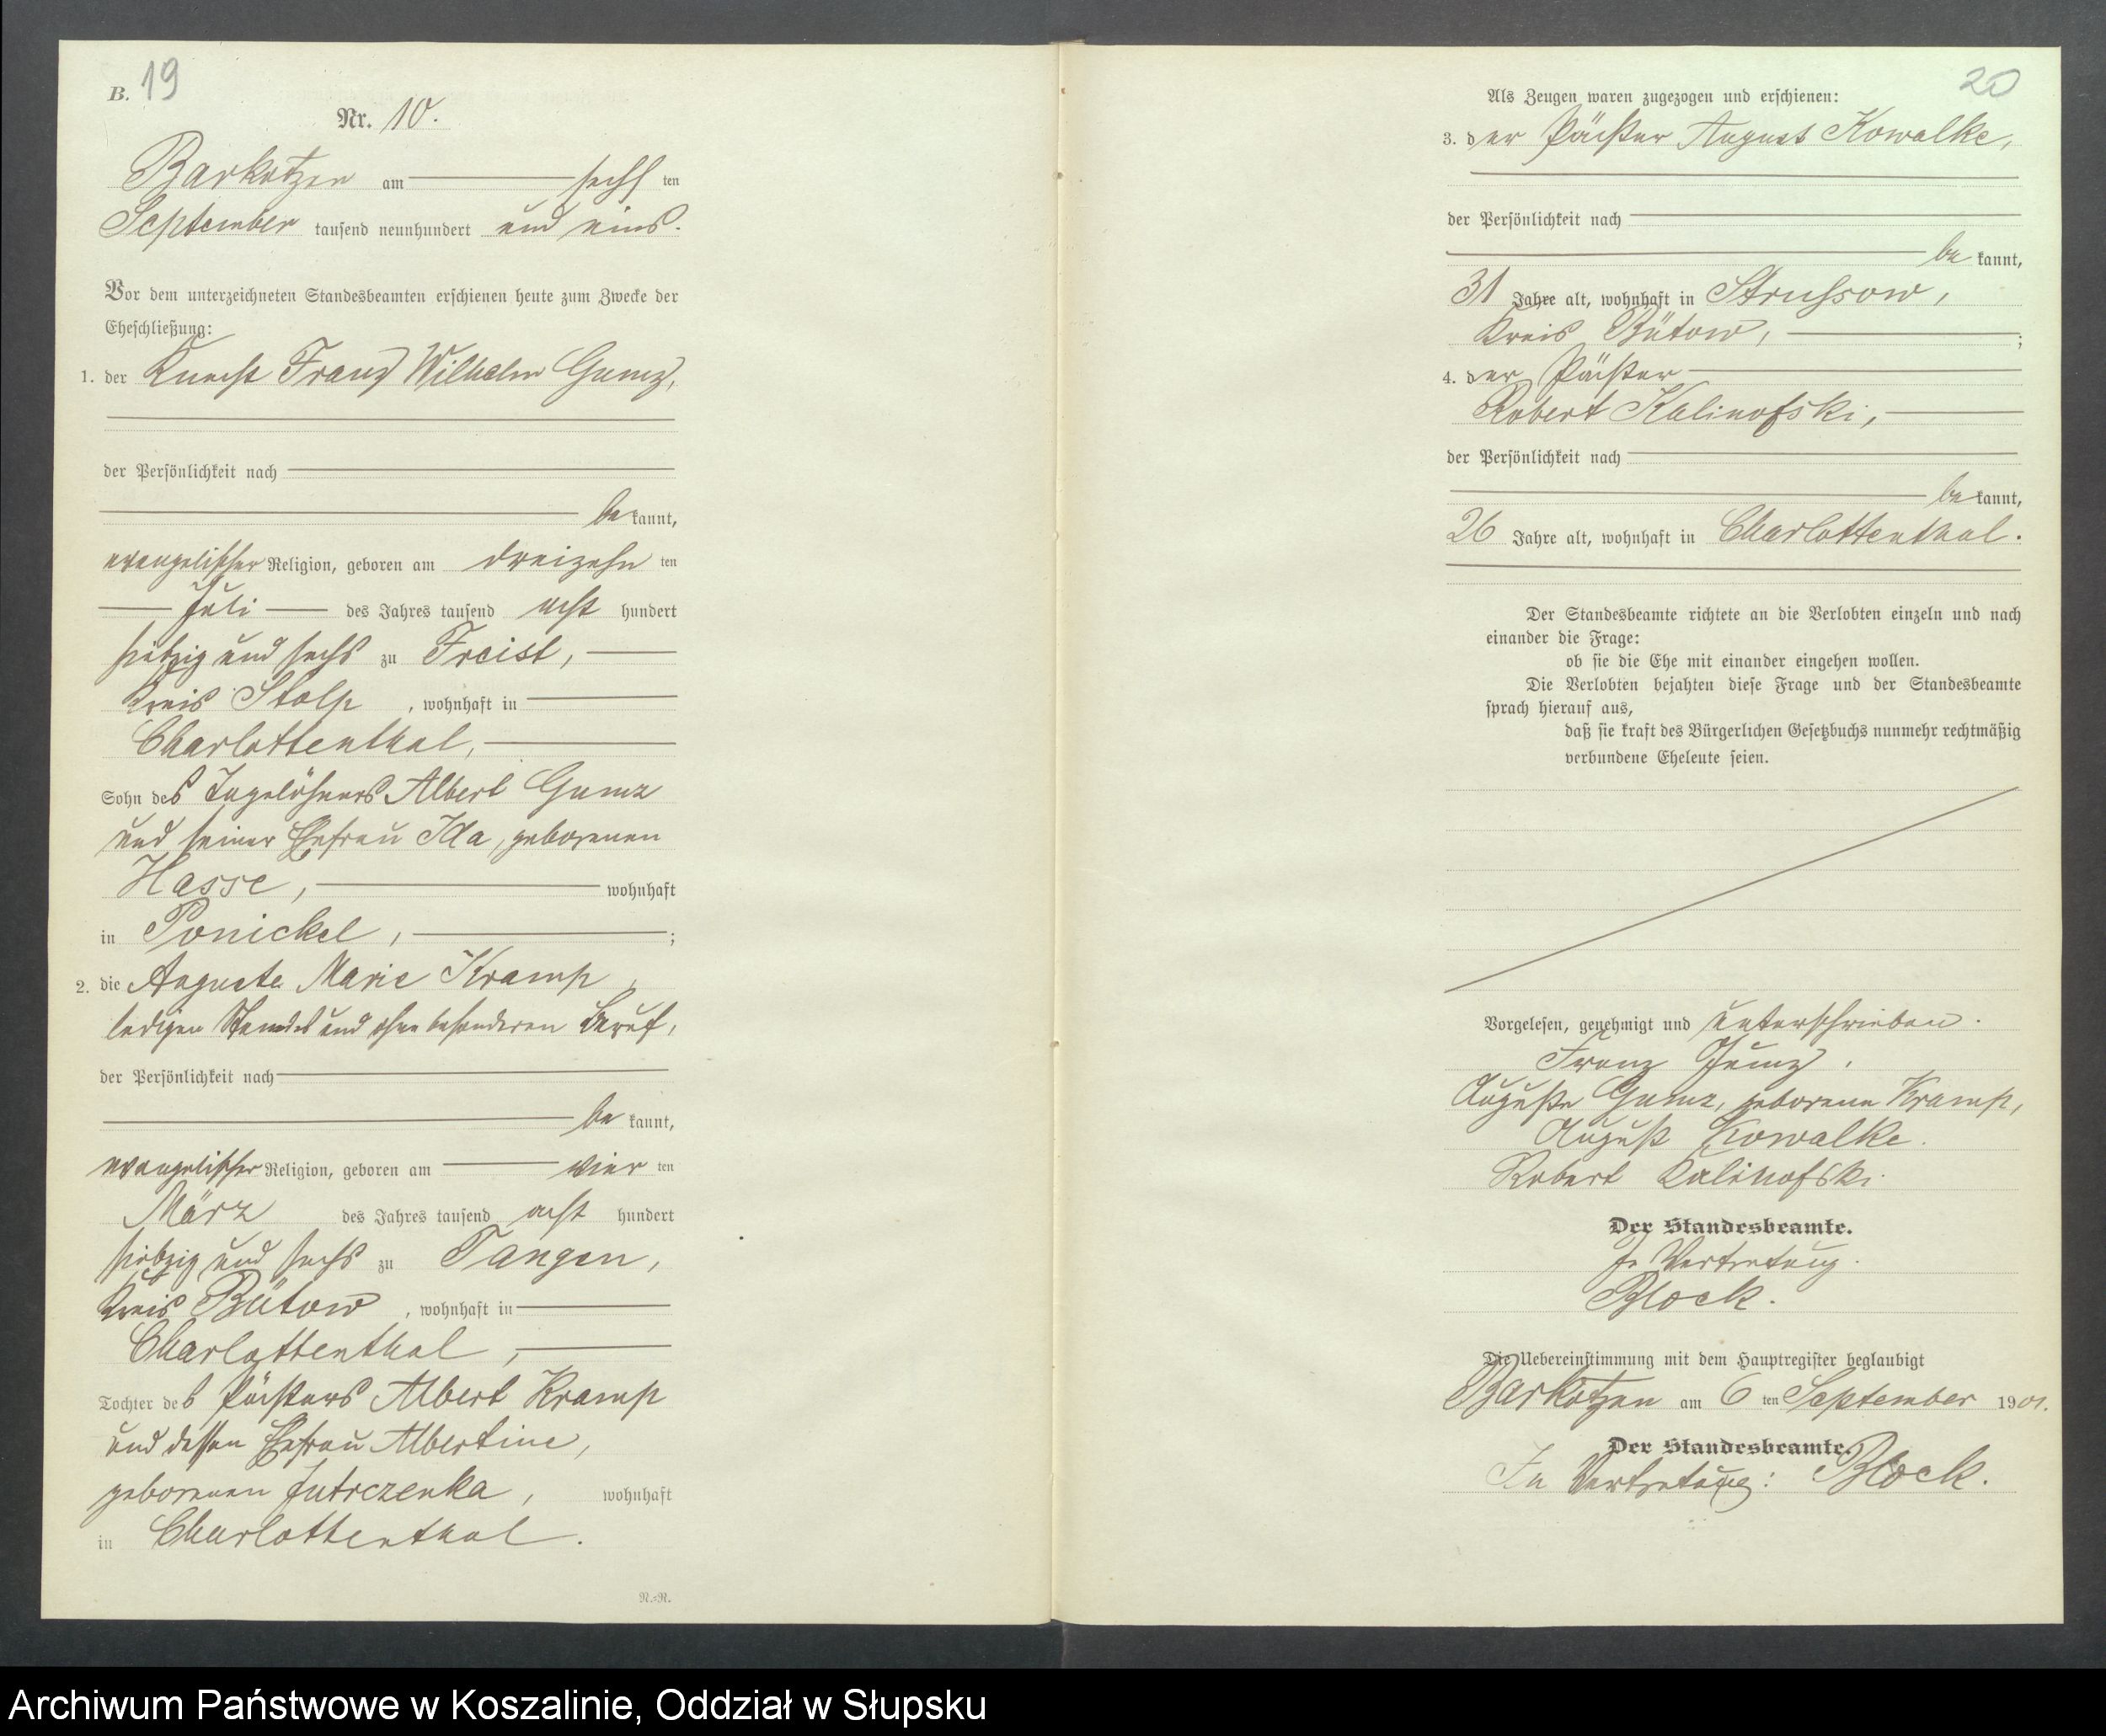 B. 19
Nr. 10.
Barkotzen am sechs ten
September tausend neunhundert und eins.
Vor dem unterzeichneten Standesbeamten erschienen heute zum Zwecke der
Eheschließung:
1. der Knecht Franz Wilhelm Gumz,
der Persönlichkeit nach
be kannt,
evangelischer Religion, geboren am dreizehn ten
Juli des Jahres tausend acht hundert
siebzig und sechs zu Freist,
Kreis Stolp, wohnhaft in
Charlottenthal,
Sohn des Tagelöhners Albert Gumz
und seiner Ehefrau Ida, geborenen
Hasse, wohnhaft
in Ponickel, ;
2. die Auguste Marie Kramp,
ledigen Standes und ohne besonderen Beruf,
der Persönlichkeit nach
be kannt,
evangelischer Religion, geboren am vier ten
März des Jahres tausend acht hundert
siebzig und sechs zu Tangen,
Kreis Bütow, wohnhaft in
Charlottenthal,
Tochter des Pächters Albert Kramp
und dessen Ehefrau Albertine,
geborenen Jutrczenka, wohnhaft
in Charlottenthal.
N.=N.
20
Als Zeugen waren zugezogen und erschienen:
3. der Pächter August Kowalke,
der Persönlichkeit nach
be kannt,
31 Jahre alt, wohnhaft in Strussow,
Kreis Bütow, ;
4. der Pächter
Robert Kalinofski,
der Persönlichkeit nach
be kannt,
26 Jahre alt, wohnhaft in Charlottenthal.
Der Standesbeamte richtete an die Verlobten einzeln und nach
einander die Frage:
ob sie die Ehe mit einander eingehen wollen.
Die Verlobten bejahten diese Frage und der Standesbeamte
sprach hierauf aus,
daß sie kraft des Bürgerlichen Gesetzbuchs nunmehr rechtmäßig
verbundene Eheleute seien.
Vorgelesen, genehmigt und unterschrieben.
Franz Gumz.
Auguste Gumz, geborene Kramp,
August Kowalke.
Robert Kalinofski.
Der Standesbeamte.
In Vertretung.
Block.
Die Uebereinstimmung mit dem Hauptregister beglaubigt
Barkotzen am 6 ten September 1901.
Der Standesbeamte.
In Vertretung: Block.
Archiwum Państwowe w Koszalinie, Oddział w Słupsku